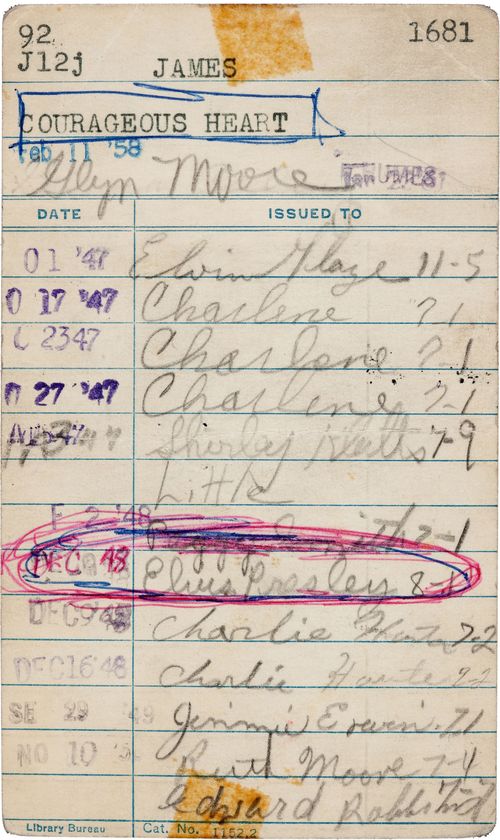 92 1681
J12j JAMES
COURAGEOUS HEART
Feb 11 '58
Glyn Moore
DATE ISSUED TO
01 '47 Elvin Glaze 11-5
17 '47 Charlene 7-1
2347 Charlene 7-1
27 '47 Charlene 7-1
Shirley 7-9
Little
F 2 '48 Peggy 7-1
DEC 48 Elvis Presley 8-
DEC 9 '48 Charlie 7-2
DEC 16 '48 Charlie 7-2
SE 29 '49 Jimmie Erwin 71
NO 10 Ruth Moore 7-4
Edward
Library Bureau Cat. No. 1152.2